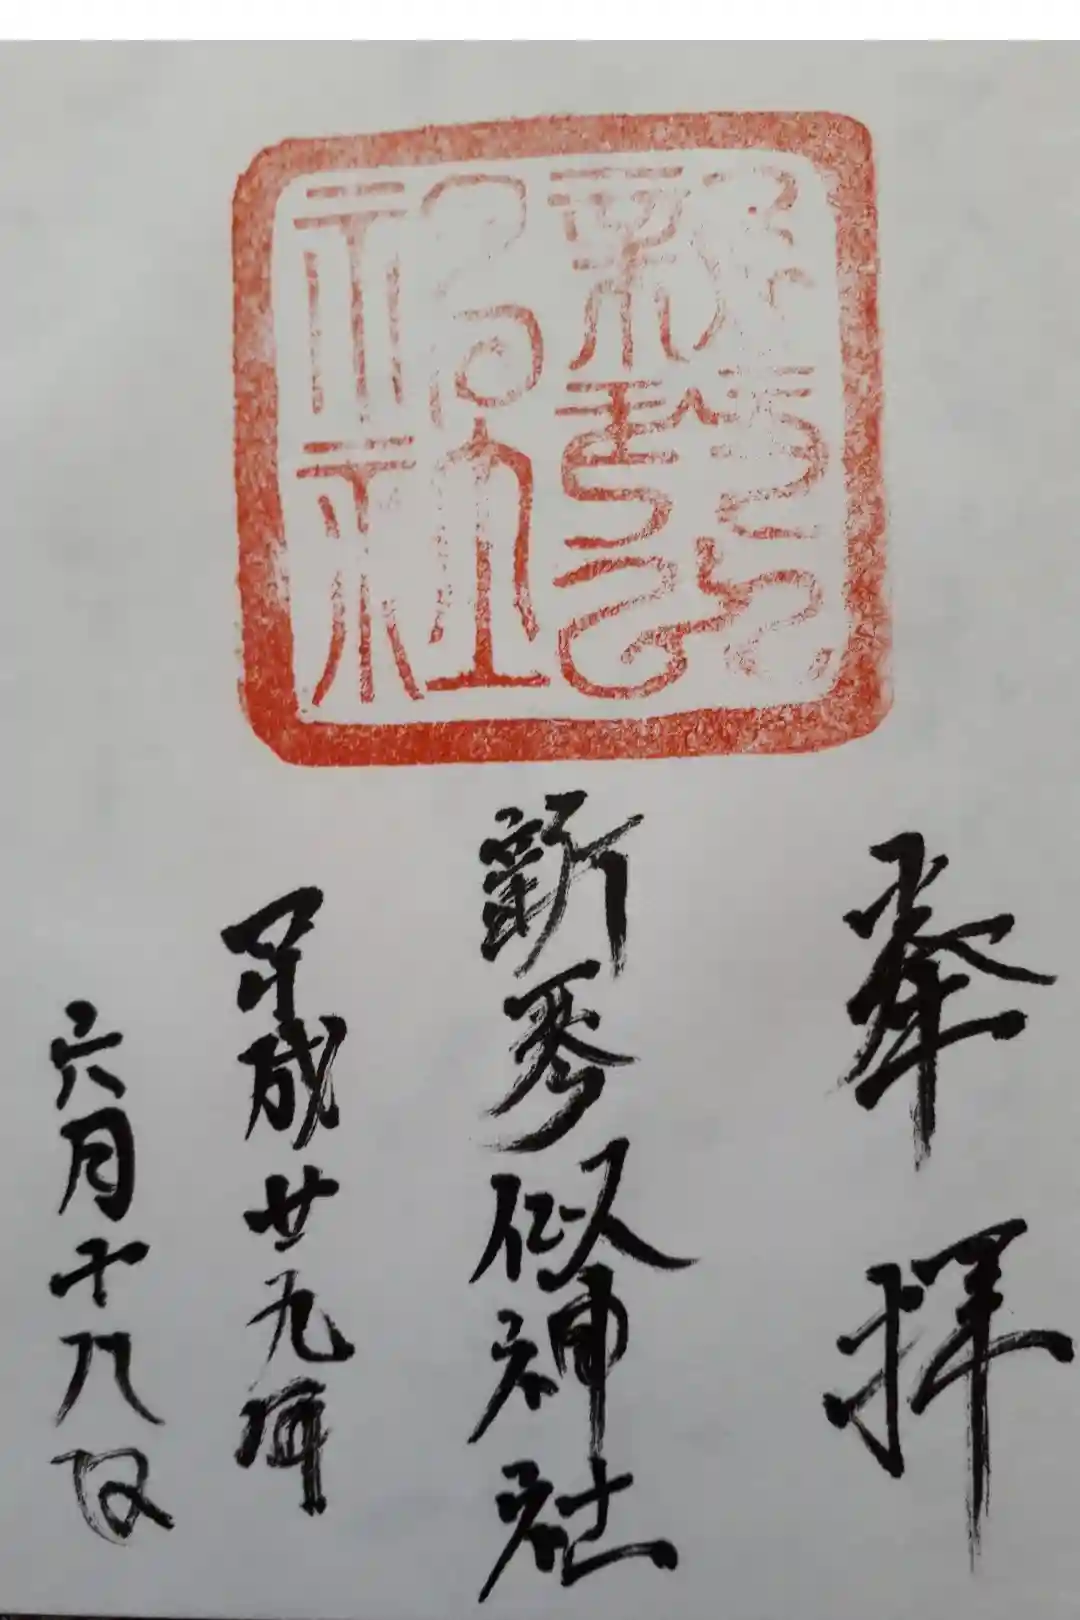 新琴似
神社
奉拝
新琴似神社
平成廿九年
六月十八日